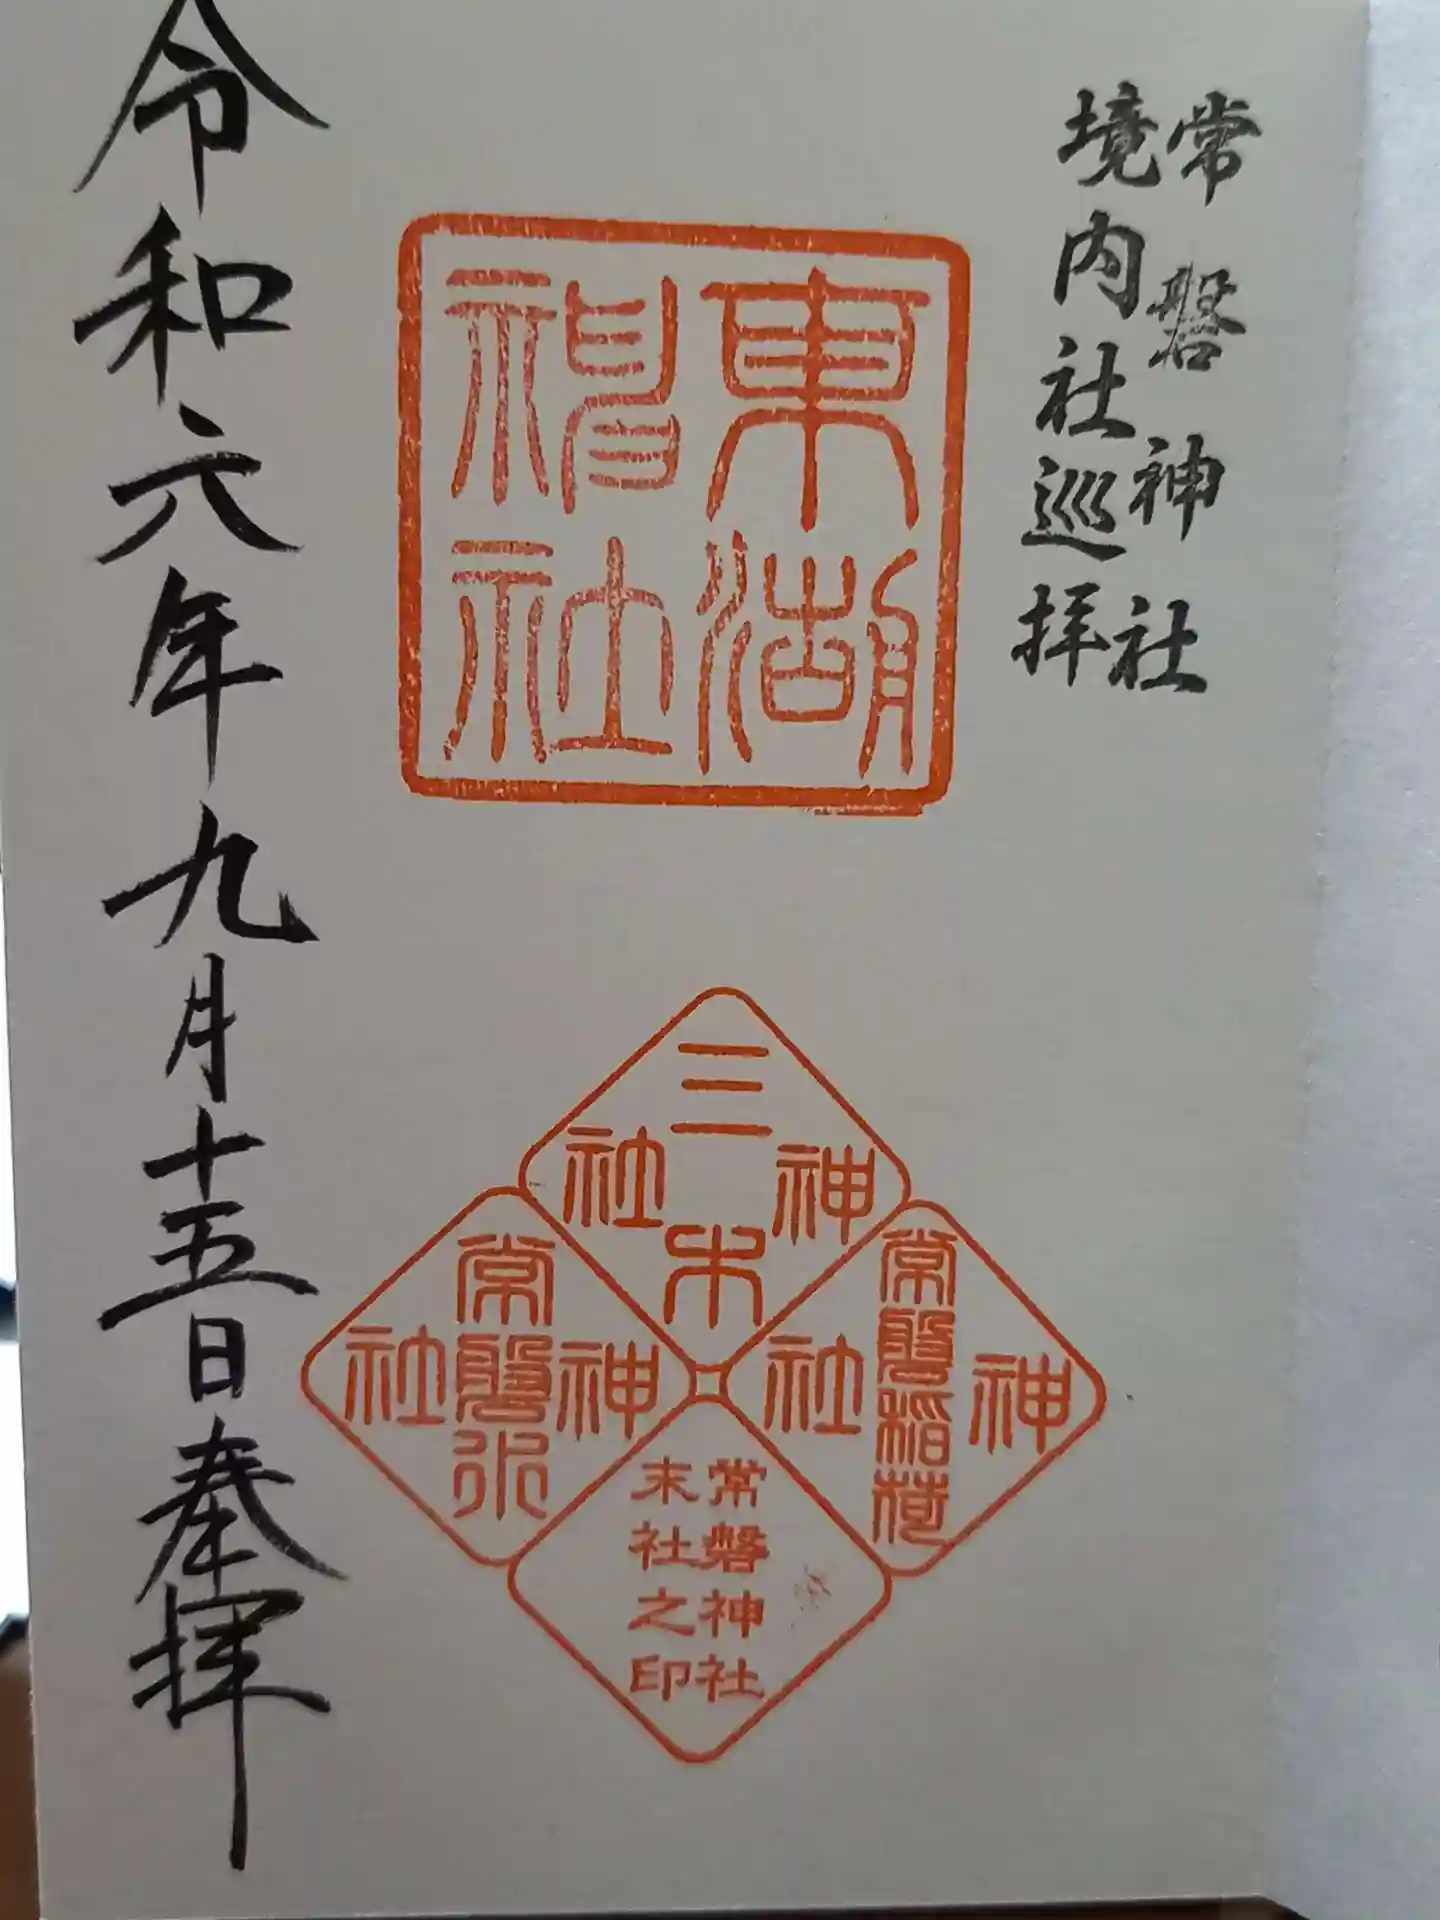 常磐神社
境内社巡拝
東湖
神社
三木
神社
常磐稲荷
神社
常磐
神社
常磐神社
末社之印
令和六年九月十五日奉拝